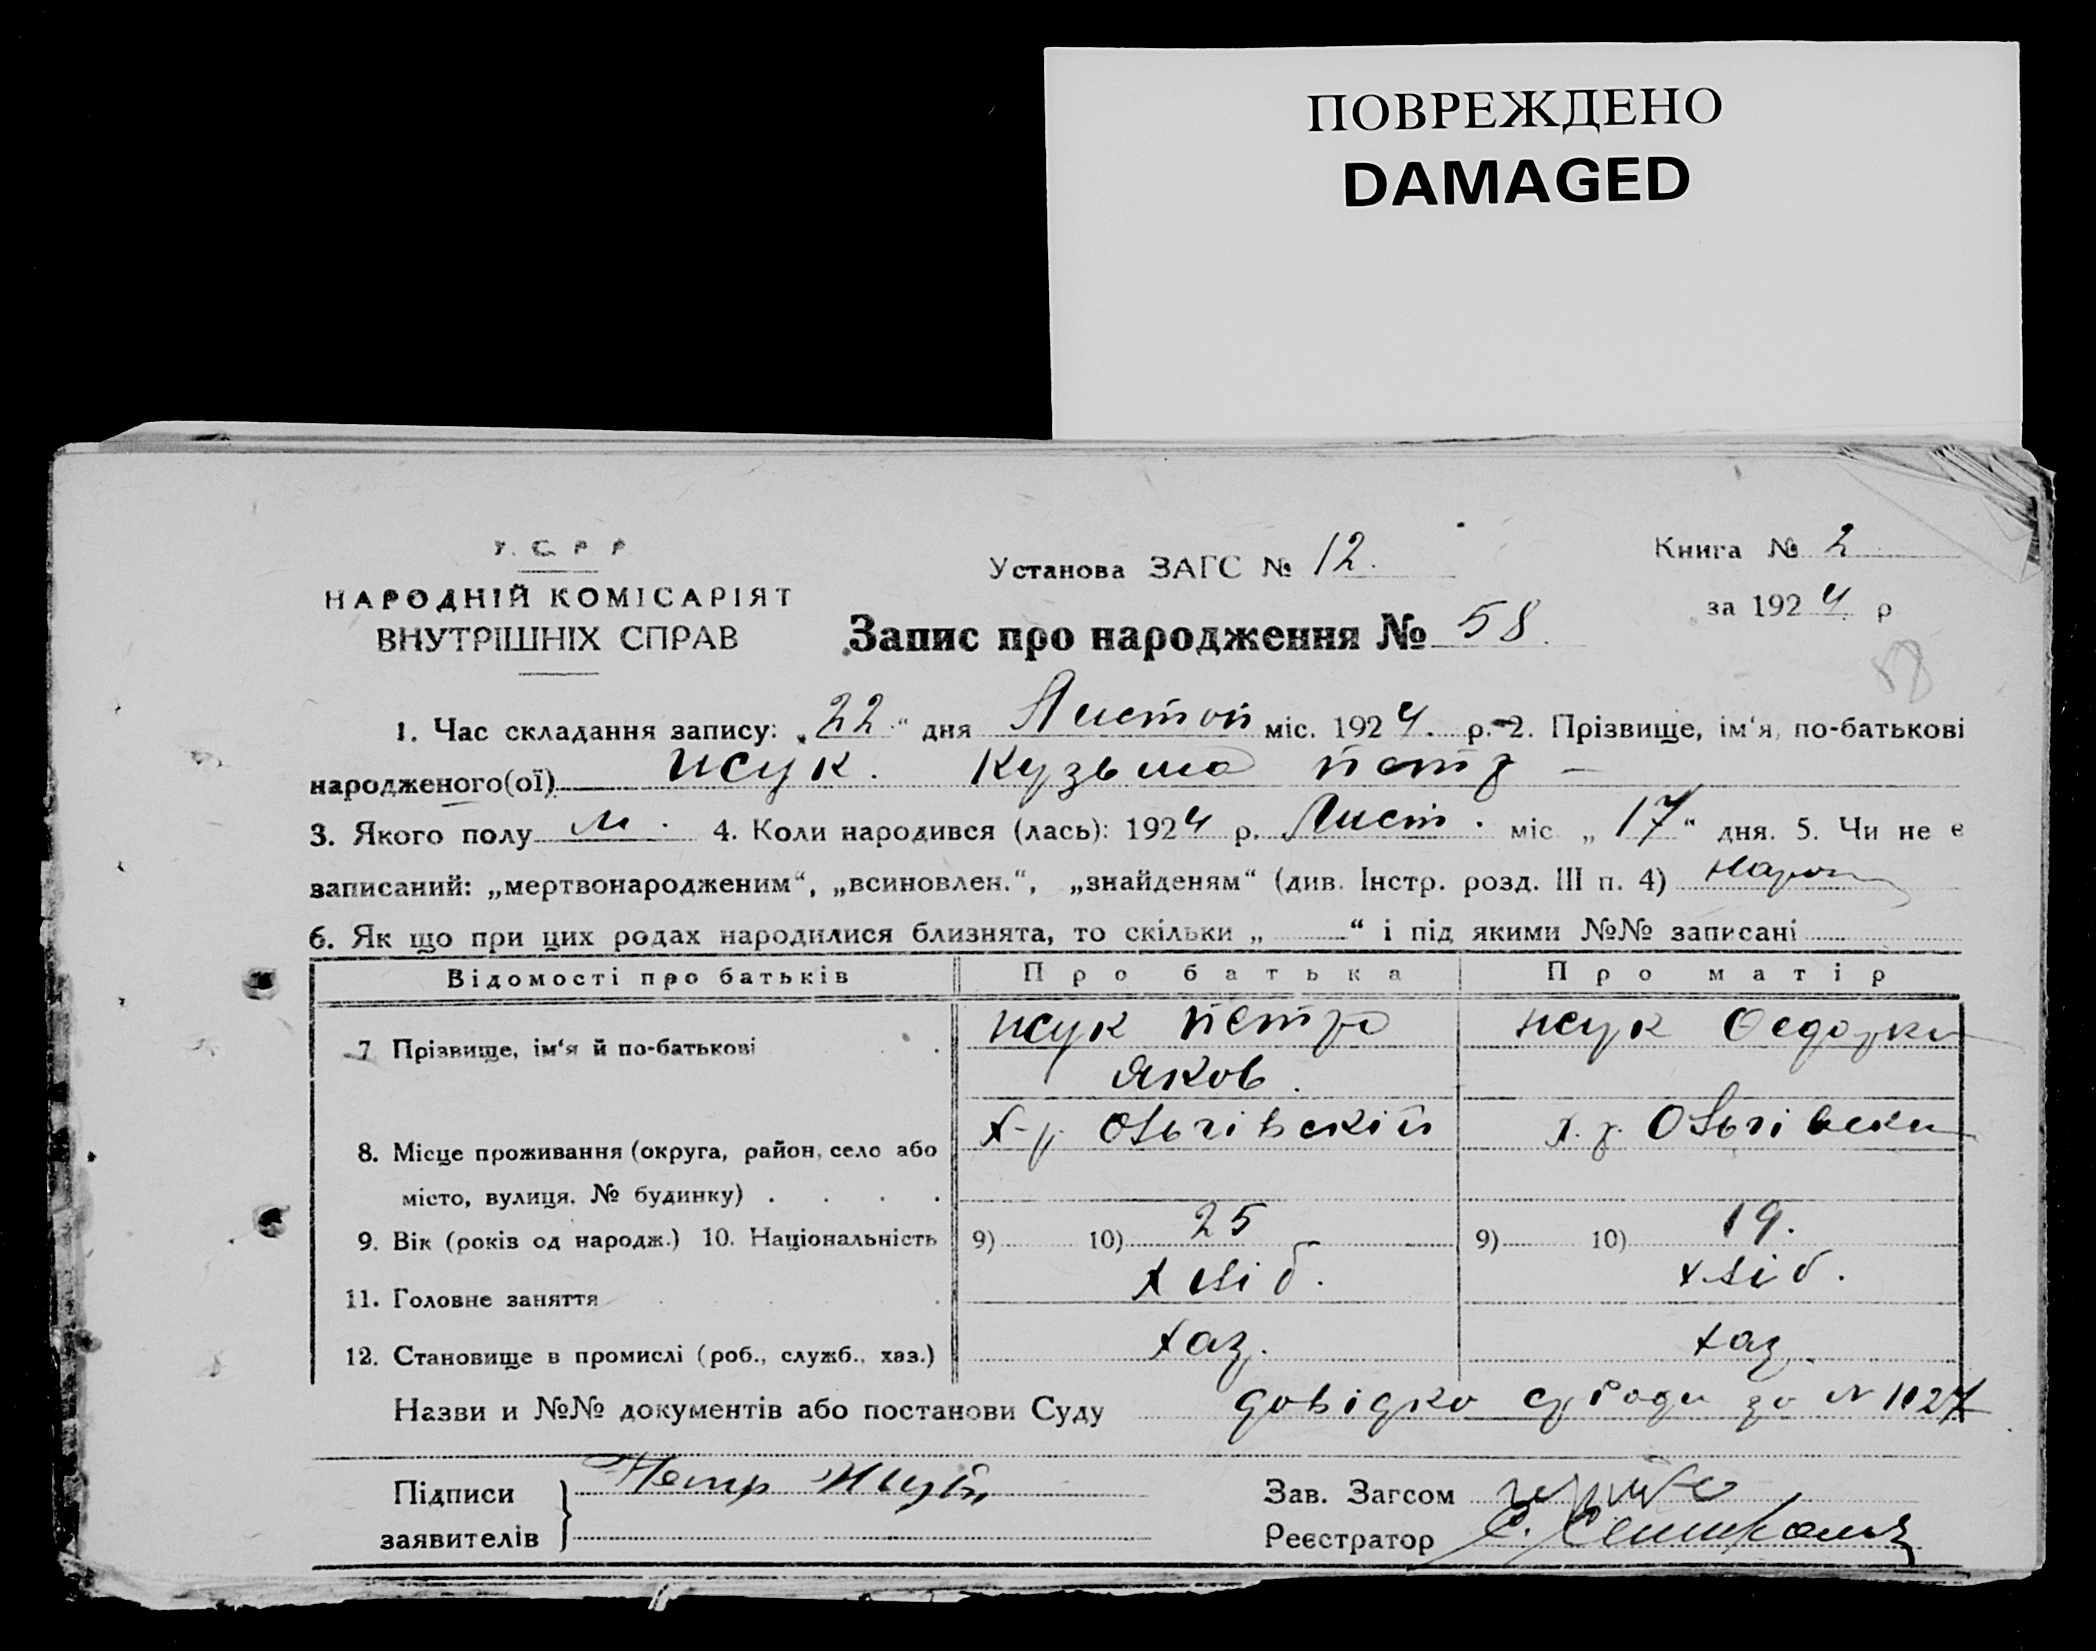 ПОВРЕЖДЕНО
DAMAGED
У. С. Р. Р.
НАРОДНІЙ КОМІСАРІЯТ
ВНУТРІШНІХ СПРАВ
Установа ЗАГС № 12.
Книга № 2
за 1924 р
Запис про народження № 58.
58
1. Час складання запису: „22“ дня Листоп міс. 1924. р. 2. Прізвище, ім‘я, по-батькові
народженого(ої) Жук. Кузьма Петр –
3. Якого полу м. 4. Коли народився (лась): 1924 р. Лист. міс „17“ дня. 5. Чи не є
записаний: „мертвонародженим“, „всиновлен.“, „знайденям“ (див. Інстр. розд. III п. 4)
6. Як що при цих родах народилися близнята, то скільки „ “ і під якими №№ записані
Відомості про батьків Про батька Про матір
7 Прізвище, ім‘я й по-батькові Жук Петро Жук
Яков.
Х-р. Ольгівский х. р.
8. Місце проживання (округа, район, село або
місто, вулиця, № будинку)
9. Вік (років од народж.) 10. Національність 9) 10) 25 9) 10) 19.
11. Головне заняття хліб. хліб.
12. Становище в промислі (роб., служб., хаз.) хаз. хаз
Назви и №№ документів або постанови Суду довідка за № 1127
Підписи Петр Жук
заявителів
Зав. Загсом
Реєстратор